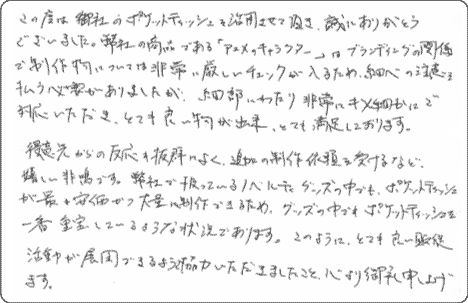 この度は御社のポケットティッシュを活用させて頂き、誠にありがとう
ございました。弊社の商品である「アニメキャラクター」はブランディングの関係
で制作物については非常に厳しいチェックが入るため、細心の注意を
払う必要がありましたが、細部にわたり非常にキメ細かにご
対応いただき、とても良い物が出来、とても満足しております。
得意先からの反応も抜群によく、追加の制作依頼を受けるなど、
嬉しい悲鳴です。弊社で扱っているノベルティグッズの中でも、ポケットティッシュ
が最も安価かつ大量に制作できるため、グッズの中でもポケットティッシュを
一番重宝しているような状況であります。このように、とても良い販促
活動が展開できるよう協力いただきましたこと、心より御礼申し上げ
ます。